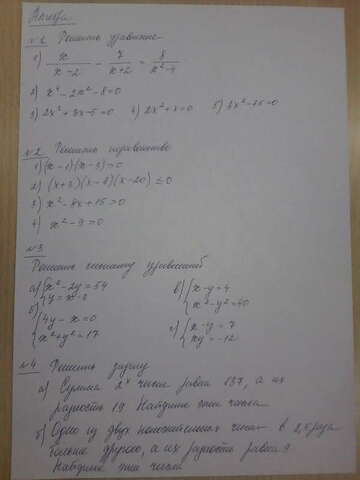 Алгебра
№1 Решить уравнение
1) x/(x-2) - 7/(x+2) = 8/(x²-4)
2) x⁴-2x²-8=0
3) 2x²+3x-5=0 4) 2x²+x=0 5) 3x²-75=0
№2 Решить неравенство
1) (x-1)(x-3)>0
2) (x+5)(x-8)(x-20) ≤0
3) x²-8x+15>0
4) x²-9=0
№3
Решить систему уравнений
а) {x²-2y=54
y=x-3
в) {x-y=4
x²-y²=40
б) {4y-x=0
x²+y²=17
г) {x-y=7
xy=-12
№4 Решить задачу
а) Сумма 2х чисел равна 137, а их
разность 19 Найдите эти числа
б) Одно из двух положительных чисел в 2,5 раза
больше другого, а их разность равна 9
Найдите эти числа